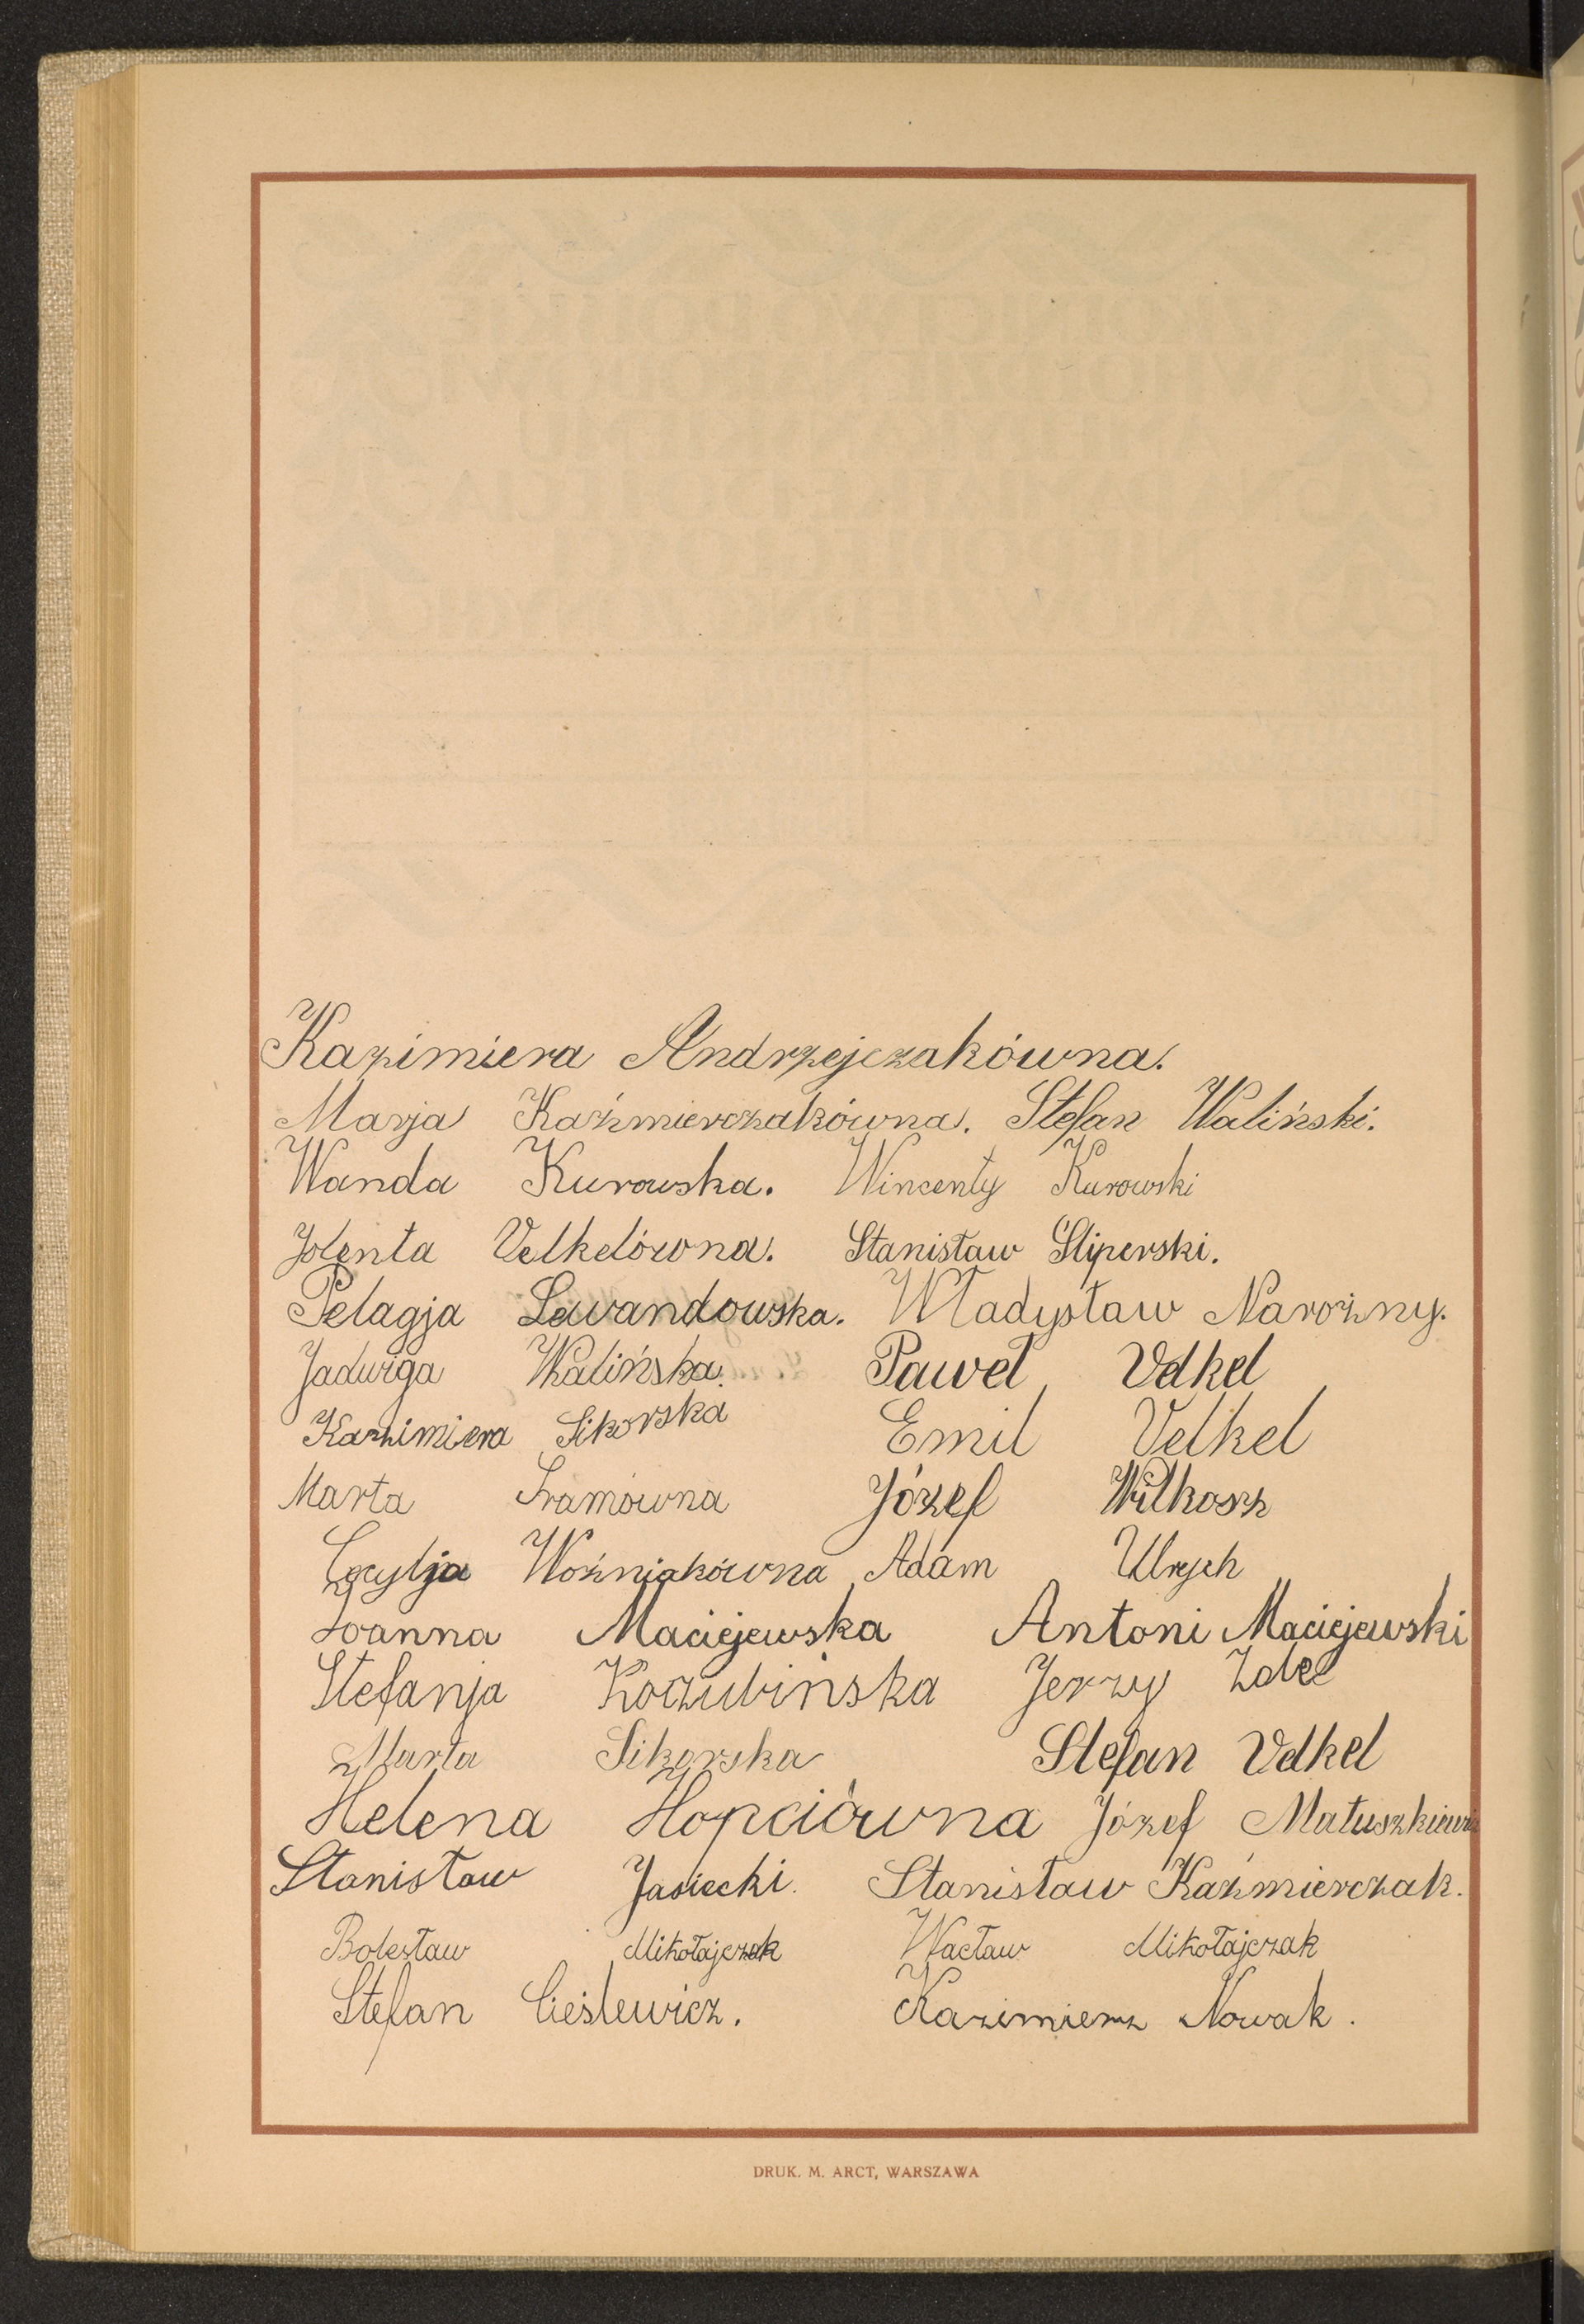 Kazimiera Andrzejczakówna.
Marja Kaźmierczakówna. Stefan Waliński.
Wanda Kurowska. Wincenty Kurowski
Jolenta Velkelówna. Stanisław Śliperski.
Pelagja Lewandowska. Władysław Narożny.
Jadwiga Walińska. Paweł Velkel
Kazimiera Sikorska Emil Velkel
Marta Józef Wilkosz
Cecylja Woźniakówna Adam Ulrych
Joanna Maciejewska Antoni Maciejewski
Stefanja Koczubińska Jerzy
Marta Sikorska Stefan Velkel
Helena Hopciówna Józef Matuszkiewicz
Stanisław Jasiecki. Stanisław Kaźmierczak.
Bolesław Mikołajczak Wacław Mikołajczak
Stefan Cieślewicz. Kazimierz Nowak.
DRUK. M. ARCT, WARSZAWA